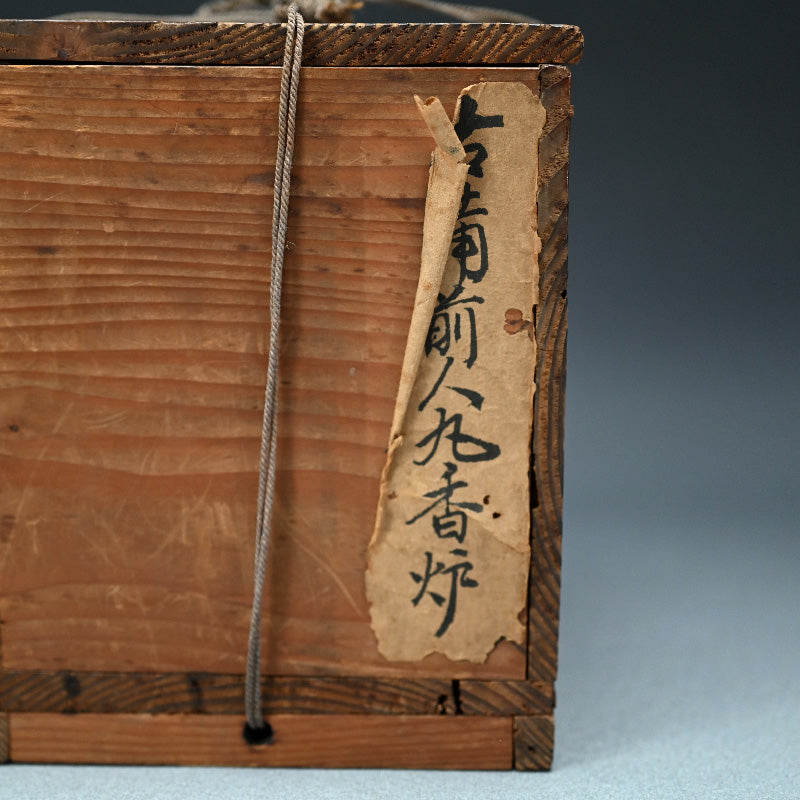 古備前人丸香炉